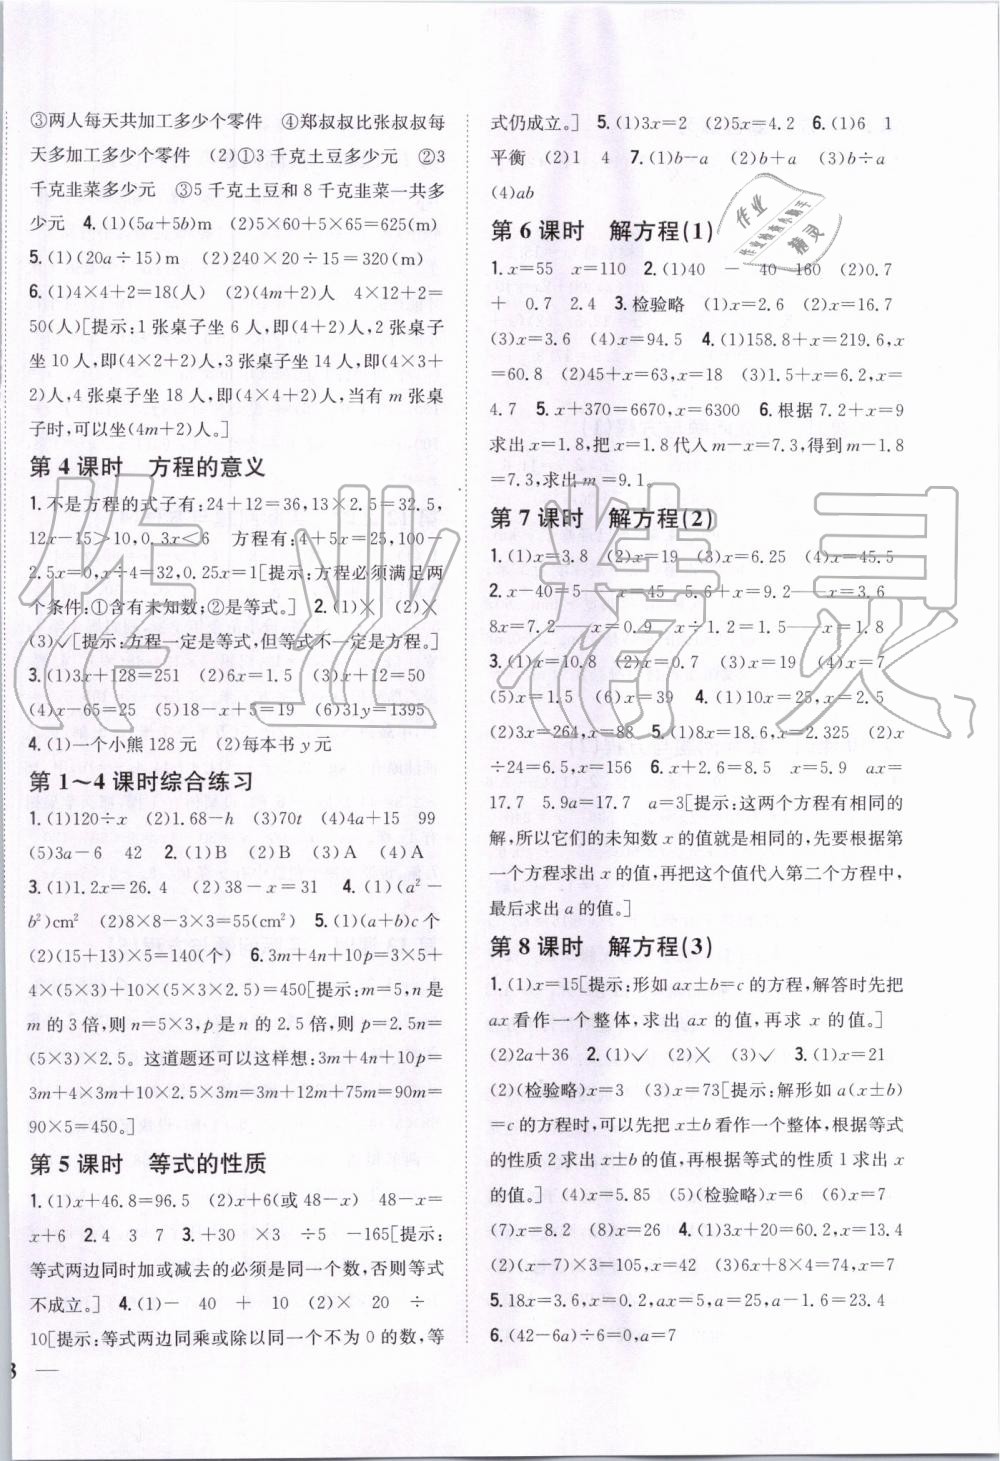 ③两人每天共加工多少个零件　④郑叔叔比张叔叔每
天多加工多少个零件　(2)①3 千克土豆多少元　②3
千克韭菜多少元　③5 千克土豆和 8 千克韭菜一共多
少元　4. (1)(5a+5b)m　(2)5×60+5×65=625(m)
5. (1)(20a÷15)m　(2)240×20÷15=320(m)
6. (1)4×4+2=18(人)　(2)(4m+2)人　4×12+2=
50(人)[提示:1 张桌子坐 6 人,即(4+2)人,2 张桌子
坐 10 人,即(4×2+2)人,3 张桌子坐 14 人,即(4×3+
2)人,4 张桌子坐 18 人,即(4×4+2)人,当有 m 张桌
子时,可以坐(4m+2)人。]
第 4 课时　方程的意义
1. 不是方程的式子有:24+12=36,13×2.5=32.5,
12x-15>10,0.3x<6　方程有:4+5x=25,100-
2.5x=0,x÷4=32,0.25x=1[提示:方程必须满足两
个条件:①含有未知数;②是等式。]　2. (1)×　(2)×
(3)√[提示:方程一定是等式,但等式不一定是方程。]
3. (1)3x+128=251　(2)6x=1.5　(3)x+12=50
(4)x-65=25　(5)18-x+5=19　(6)31y=1395
4. (1)一个小熊 128 元　(2)每本书 y 元
第 1～4 课时综合练习
1. (1)120÷x　(2)1.68-h　(3)70t　(4)4a+15　99
(5)3a-6　42　2. (1)B　(2)B　(3)A　(4)A
3. (1)1.2x=26.4　(2)38-x=31　4. (1)(a²-
b²)cm²　(2)8×8-3×3=55(cm²)　5. (1)(a+b)c 个
(2)(15+13)×5=140(个)　6. 3m+4n+10p=3×5+
4×(5×3)+10×(5×3×2.5)=450[提示:m=5,n 是
m 的 3 倍,则 n=5×3,p 是 n 的 2.5 倍,则 p=2.5n=
(5×3)×2.5。这道题还可以这样想:3m+4n+10p=
3m+4×3m+10×2.5×3m=3m+12m+75m=90m=
90×5=450。]
第 5 课时　等式的性质
1. (1)x+46.8=96.5　(2)x+6(或 48-x)　48-x=
x+6　2. 4　3　7　3. +30　×3　÷5　-165[提示:
等式两边同时加或减去的必须是同一个数,否则等式
不成立。]　4. (1)-　40　+　10　(2)×　20　÷
10[提示:等式两边同乘或除以同一个不为 0 的数,等
式仍成立。]　5. (1)3x=2　(2)5x=4.2　6. (1)6　1
平衡　(2)1　4　7. (1)b-a　(2)b+a　(3)b÷a
(4)ab
第 6 课时　解方程(1)
1. x=55　x=110　2. (1)40　-　40　160　(2)0.7
+　0.7　2.4　3. 检验略　(1)x=2.6　(2)x=16.7
(3)x=3.6　(4)x=94.5　4. (1)158.8+x=219.6,x
=60.8　(2)45+x=63,x=18　(3)1.5+x=6.2,x=
4.7　5. x+370=6670,x=6300　6. 根据 7.2+x=9
求出 x=1.8,把 x=1.8 代入 m-x=7.3,得到 m-1.8
=7.3,求出 m=9.1。
第 7 课时　解方程(2)
1. (1)x=3.8　(2)x=19　(3)x=6.25　(4)x=45.5
2. x-40=5——x=45　5.6+x=9.2——x=3.6
8x=7.2——x=0.9　x÷1.2=1.5——x=1.8
3. (1)x=10.8　(2)x=0.7　(3)x=19　(4)x=7
(5)x=1.5　(6)x=39　4. (1)10x=25,x=2.5
(2)3x=264,x=88　5. (1)8x=18.6,x=2.325　(2)x
÷24=6.5,x=156　6. x+2.9=8.8　x=5.9　ax=
17.7　5.9a=17.7　a=3[提示:这两个方程有相同的
解,所以它们的未知数 x 的值就是相同的,先要根据第
一个方程求出 x 的值,再把这个值代入第二个方程中,
最后求出 a 的值。]
第 8 课时　解方程(3)
1. (1)x=15[提示:形如 ax±b=c 的方程,解答时先把
ax 看作一个整体,求出 ax 的值,再求 x 的值。]
(2)2a+36　2. (1)√　(2)×　(3)√　3. (1)x=21
(2)(检验略)x=3　(3)x=73[提示:解形如 a(x±b)
=c 的方程时,可以先把 x±b 看作一个整体,根据等式
的性质 2 求出 x±b 的值,再根据等式的性质 1 求出 x
的值。]　(4)x=5.85　(5)(检验略)x=6　(6)x=7
(7)x=8.2　(8)x=26　4. (1)3x+20=60.2,x=13.4
(2)(x-7)×3=105,x=42　(3)6x+3x=108,x=12
5. 18x=3.6,x=0.2,ax=5,a=25,a-1.6=23.4
6. (42-6a)÷6=0,a=7
作业精灵
作业
精灵